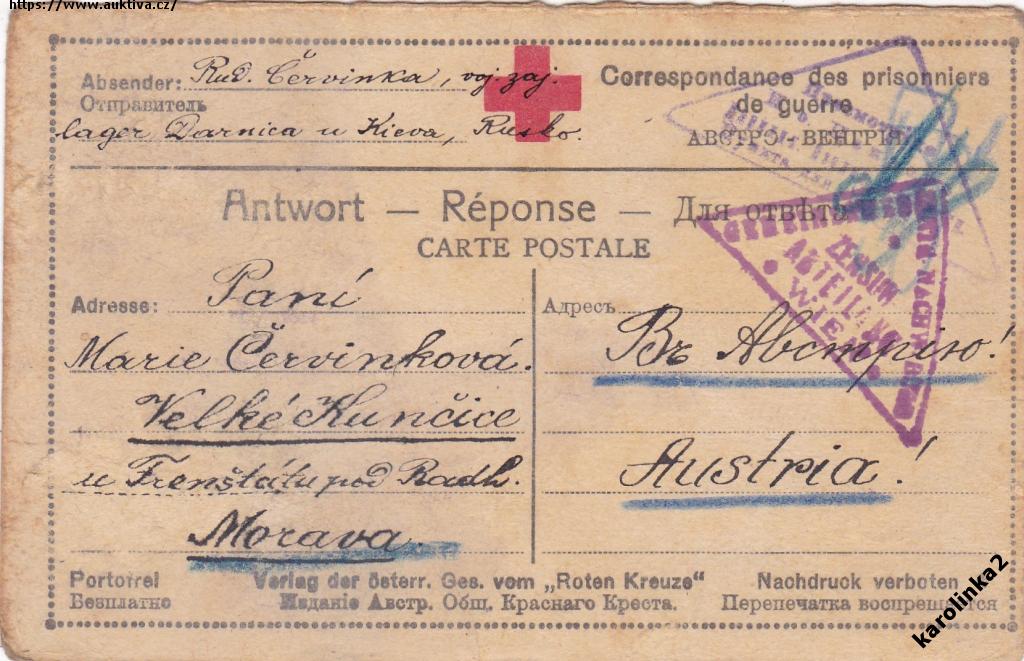 https://www.auktiva.cz/
Absender: Rud. Červinka, voj. zaj.
Отправитель
lager Darnica u Kieva, Rusko.
Correspondance des prisonniers
de guerre
АВСТРО-ВЕНГРІЯ
Antwort — Réponse — Для отвѣта
CARTE POSTALE
ZENSUR
ABTEILUNG
WIEN
Adresse: Paní
Marie Červinková.
Velké Kunčice
u Frenštátu pod Radh.
Morava.
Адресъ
Въ Австрію!
Austria!
Portofrei
Безплатно
Verlag der österr. Ges. vom „Roten Kreuze"
Изданіе Австр. Общ. Краснаго Креста.
Nachdruck verboten
Перепечатка воспрещается
karolinka2